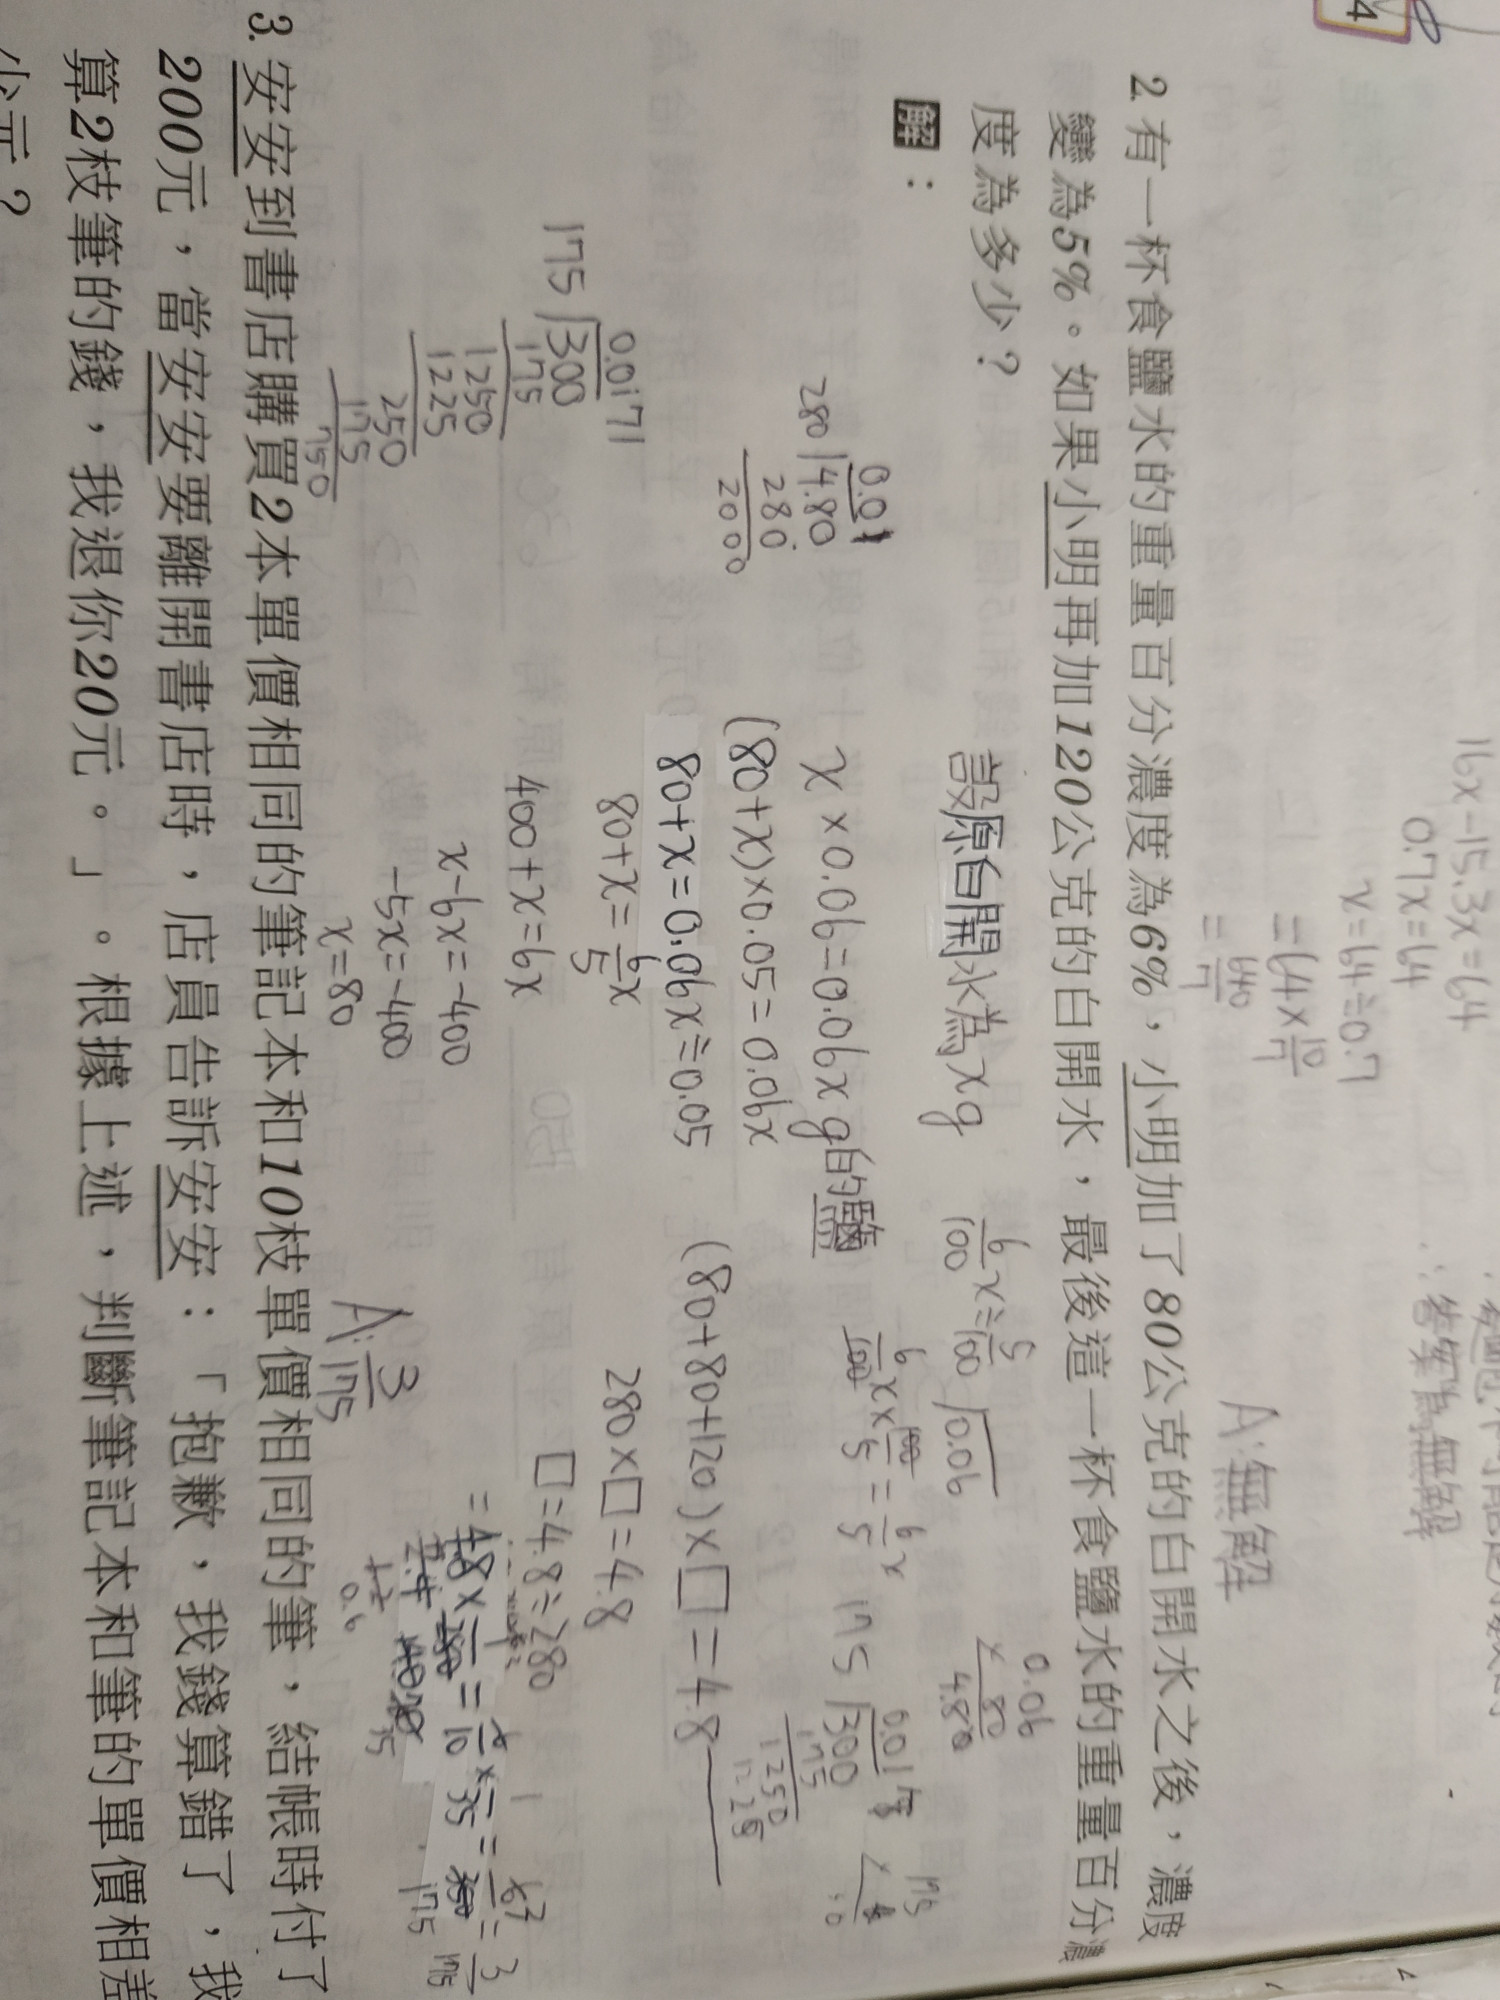 4
16x-15.3x=64
0.7x=64
x=64÷0.7
=64×10/7
=640/7
答案為無解
A:無解
2. 有一杯食鹽水的重量百分濃度為6%，小明加了80公克的白開水之後，濃度
變為5%。如果小明再加120公克的白開水，最後這一杯食鹽水的重量百分濃
度為多少？
解：
設原白開水為xg
x×0.06=0.06xg的鹽
(80+x)×0.05=0.06x
80+x=0.06x÷0.05
80+x=6/5x
400+x=6x
x-6x=-400
-5x=-400
x=80
6/100x÷5/100
0.06
6/100x×100/5=6/5x
0.06
×80
4.80
(80+80+120)×□=4.8
280×□=4.8
□=4.8÷280
A:3/175
0.01
280 4.80
280
2000
0.0171
175 300
175
1250
1225
250
175
750
175 300
175
1250
3. 安安到書店購買2本單價相同的筆記本和10枝單價相同的筆，結帳時付了
200元，當安安要離開書店時，店員告訴安安：「抱歉，我錢算錯了，我
算2枝筆的錢，我退你20元。」。根據上述，判斷筆記本和筆的單價相差
少元？